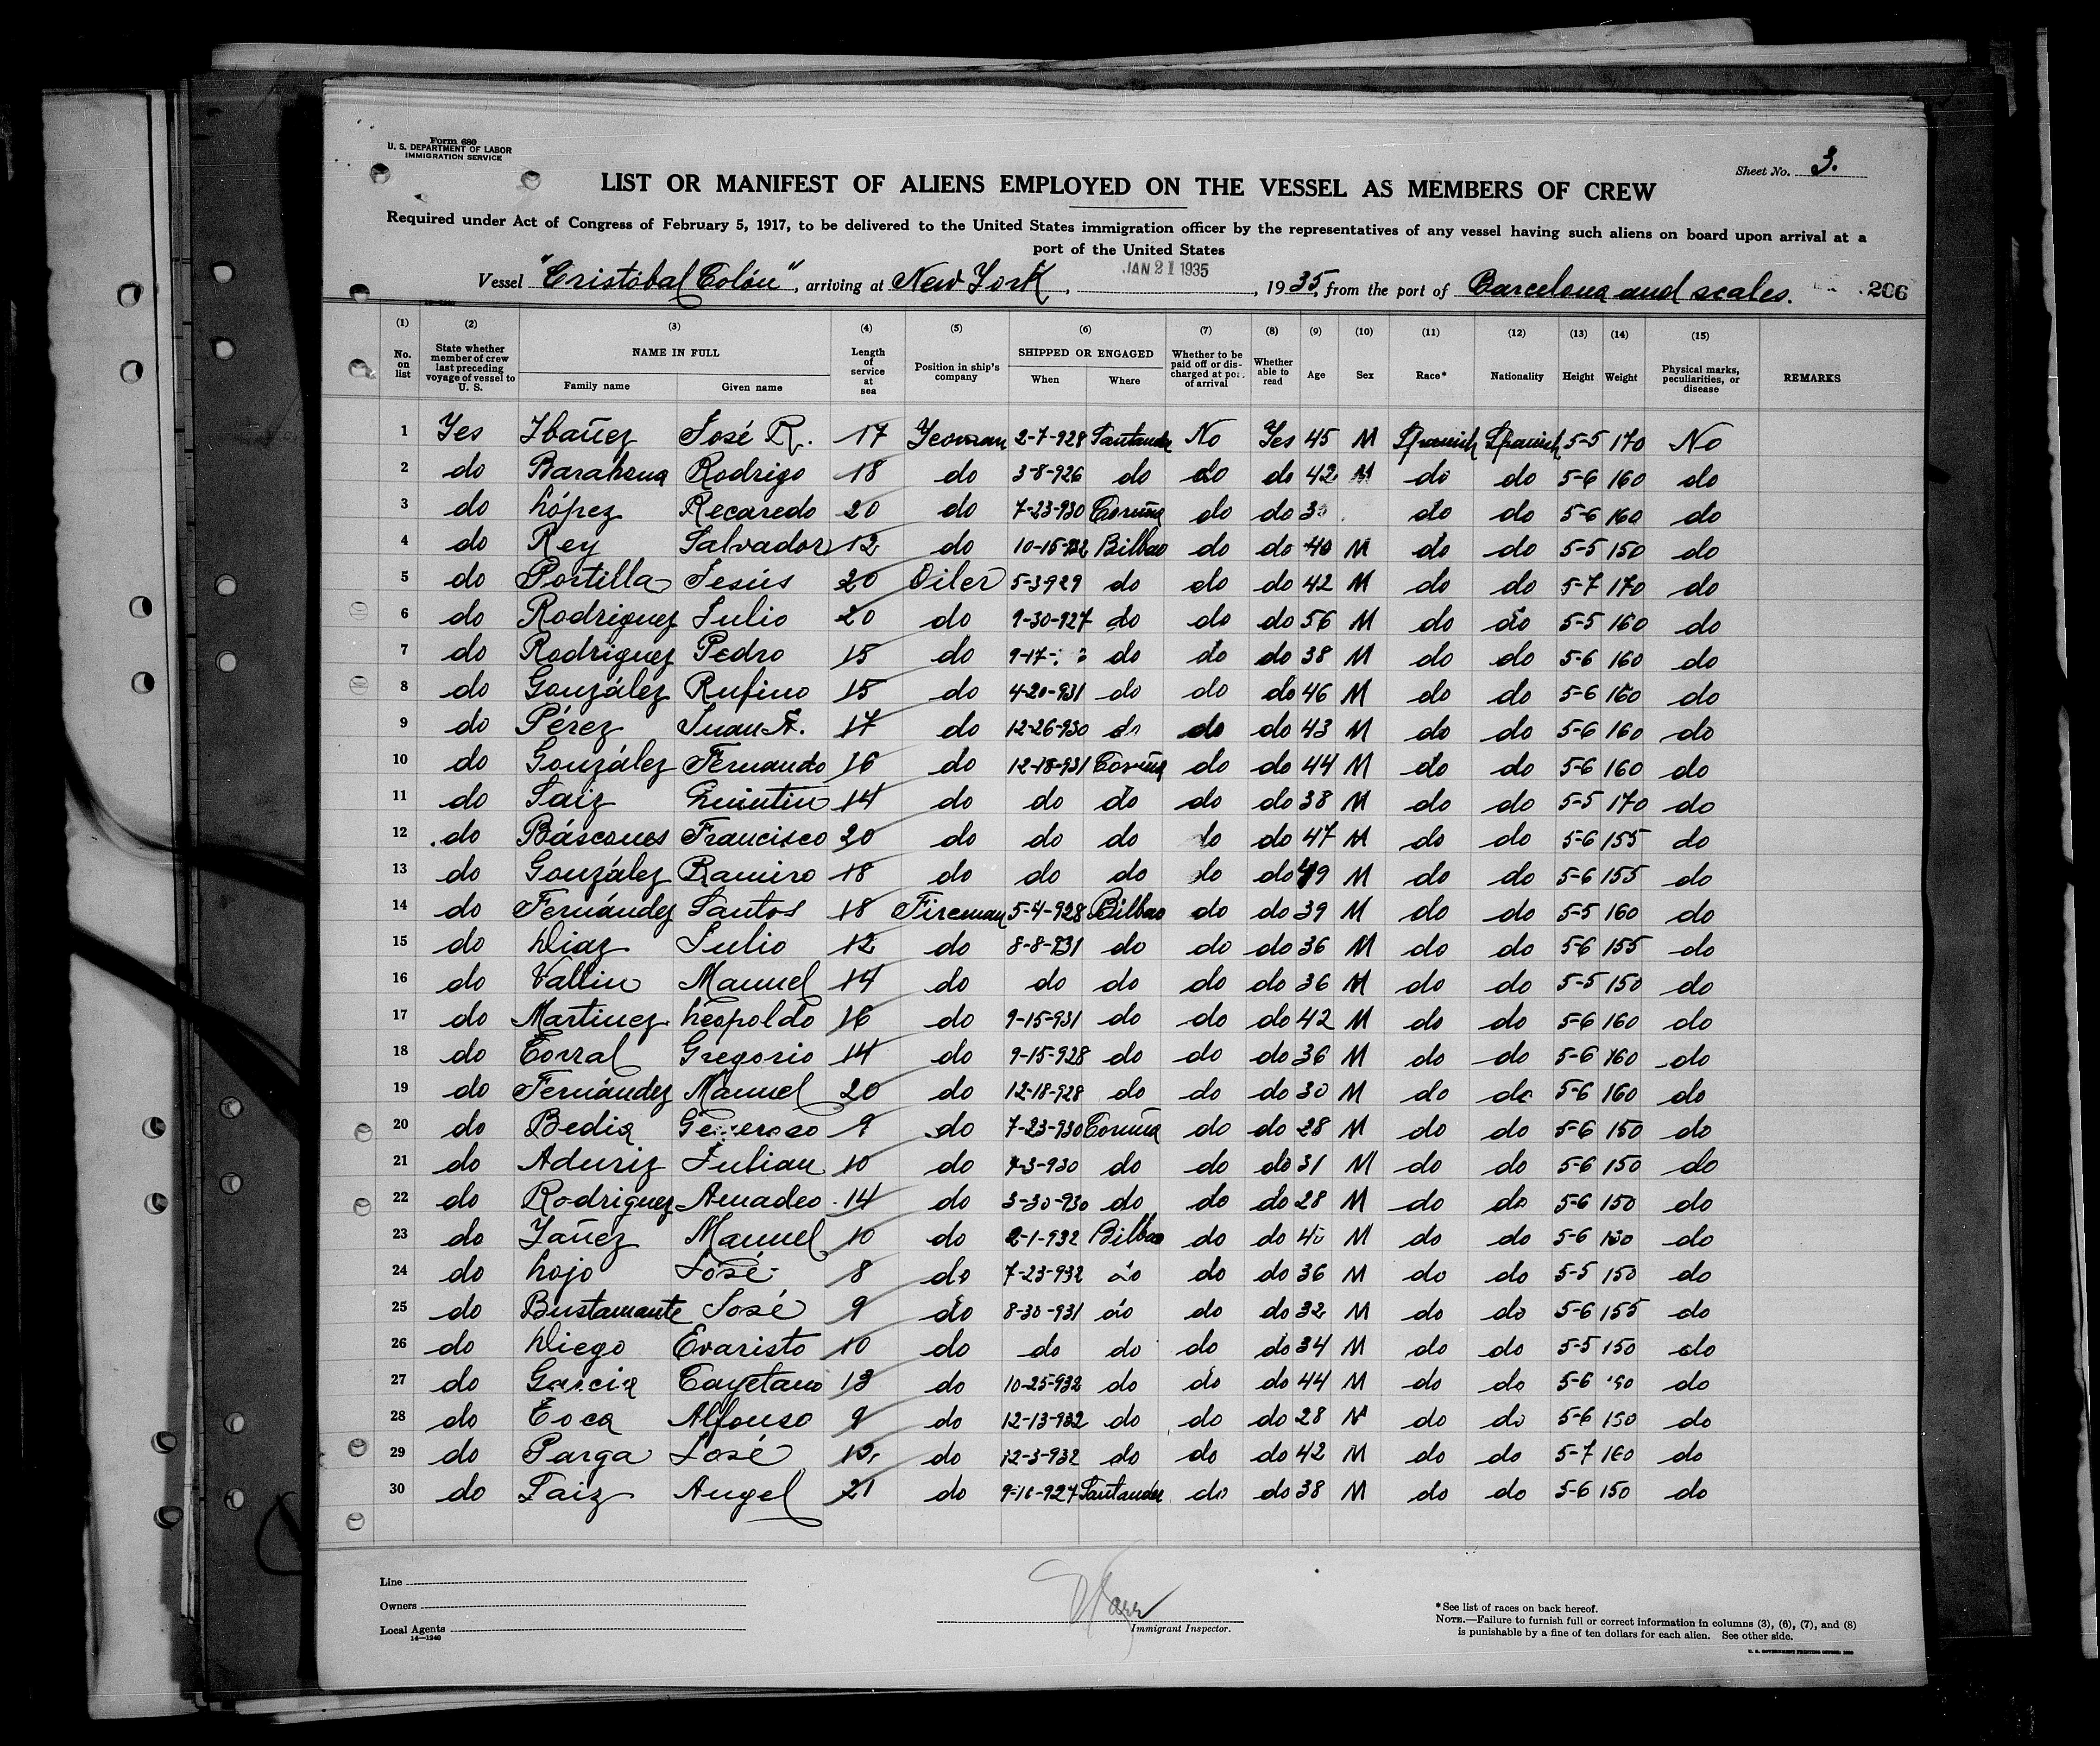 Form 680
U. S. DEPARTMENT OF LABOR
IMMIGRATION SERVICE
Sheet No. 3.
LIST OR MANIFEST OF ALIENS EMPLOYED ON THE VESSEL AS MEMBERS OF CREW
Required under Act of Congress of February 5, 1917, to be delivered to the United States immigration officer by the representatives of any vessel having such aliens on board upon arrival at a
port of the United States
JAN 21 1935
Vessel "Cristóbal Colón", arriving at New York, 1935, from the port of Barcelona and scales. 206
(1) (2) (3) (4) (5) (6) (7) (8) (9) (10) (11) (12) (13) (14) (15)
No. on list State whether member of crew last preceding voyage of vessel to U. S. NAME IN FULL Family name Given name Length of service at sea Position in ship's company SHIPPED OR ENGAGED When Where Whether to be paid off or discharged at port of arrival Whether able to read Age Sex Race* Nationality Height Weight Physical marks, peculiarities, or disease REMARKS
1 Yes Ibañez José R. 17 Yeoman 2-7-928 Santander No Yes 45 M Spanish Spanish 5-5 170 No
2 do Barahona Rodrigo 18 do 3-8-926 do do do 42 M do do 5-6 160 do
3 do López Recaredo 20 do 7-23-930 Coruña do do do do 5-6 160 do
4 do Rey Salvador 12 do 10-15-932 Bilbao do do 40 M do do 5-5 150 do
5 do Portilla Jesús 20 Oiler 5-3-929 do do do 42 M do do 5-7 170 do
6 do Rodriguez Julio 20 do 9-30-927 do do do 56 M do do 5-5 160 do
7 do Rodriguez Pedro 15 do do do do 38 M do do 5-6 160 do
8 do González Rufino 15 do 4-20-931 do do do 46 M do do 5-6 160 do
9 do Pérez Juan A. 17 do 12-26-930 do do do 43 M do do 5-6 160 do
10 do González Fernando 16 do 12-18-931 Coruña do do 44 M do do 5-6 160 do
11 do Saiz Quintin 14 do do do do do 38 M do do 5-5 170 do
12 do Báscones Francisco 20 do do do do do 47 M do do 5-6 155 do
13 do González Ramiro 18 do do do do do 49 M do do 5-6 155 do
14 do Fernández Santos 18 Fireman 5-4-928 Bilbao do do 39 M do do 5-5 160 do
15 do Diaz Julio 12 do 8-8-931 do do do 36 M do do 5-6 155 do
16 do Vallin Manuel 14 do do do do do 36 M do do 5-5 150 do
17 do Martinez Leopoldo 16 do 9-15-931 do do do 42 M do do 5-6 160 do
18 do Corral Gregorio 14 do 9-15-928 do do do 36 M do do 5-6 160 do
19 do Fernández Manuel 20 do 12-18-928 do do do 30 M do do 5-6 160 do
20 do Bedia Generoso 9 do 7-23-930 Coruña do do 28 M do do 5-6 150 do
21 do Aduriz Julian 10 do 7-3-930 do do do 31 M do do 5-6 150 do
22 do Rodriguez Amadeo 14 do 3-30-930 do do do 28 M do do 5-6 150 do
23 do Yañez Manuel 10 do 2-1-932 Bilbao do do 40 M do do 5-6 130 do
24 do Lojo José 8 do 7-23-932 do do do 36 M do do 5-5 150 do
25 do Bustamante José 9 do 8-30-931 do do do 32 M do do 5-6 155 do
26 do Diego Evaristo 10 do do do do do 34 M do do 5-5 150 do
27 do Garcia Cayetano 13 do 10-25-932 do do do 44 M do do 5-6 do
28 do Coca Alfonso 9 do 12-13-932 do do do 28 M do do 5-6 150 do
29 do Parga José do 12-3-932 do do do 42 M do do 5-7 160 do
30 do Saiz Angel 21 do Santander do do 38 M do do 5-6 150 do
Line
Owners
Local Agents
14—1240
Immigrant Inspector.
*See list of races on back hereof.
NOTE.—Failure to furnish full or correct information in columns (3), (6), (7), and (8)
is punishable by a fine of ten dollars for each alien. See other side.